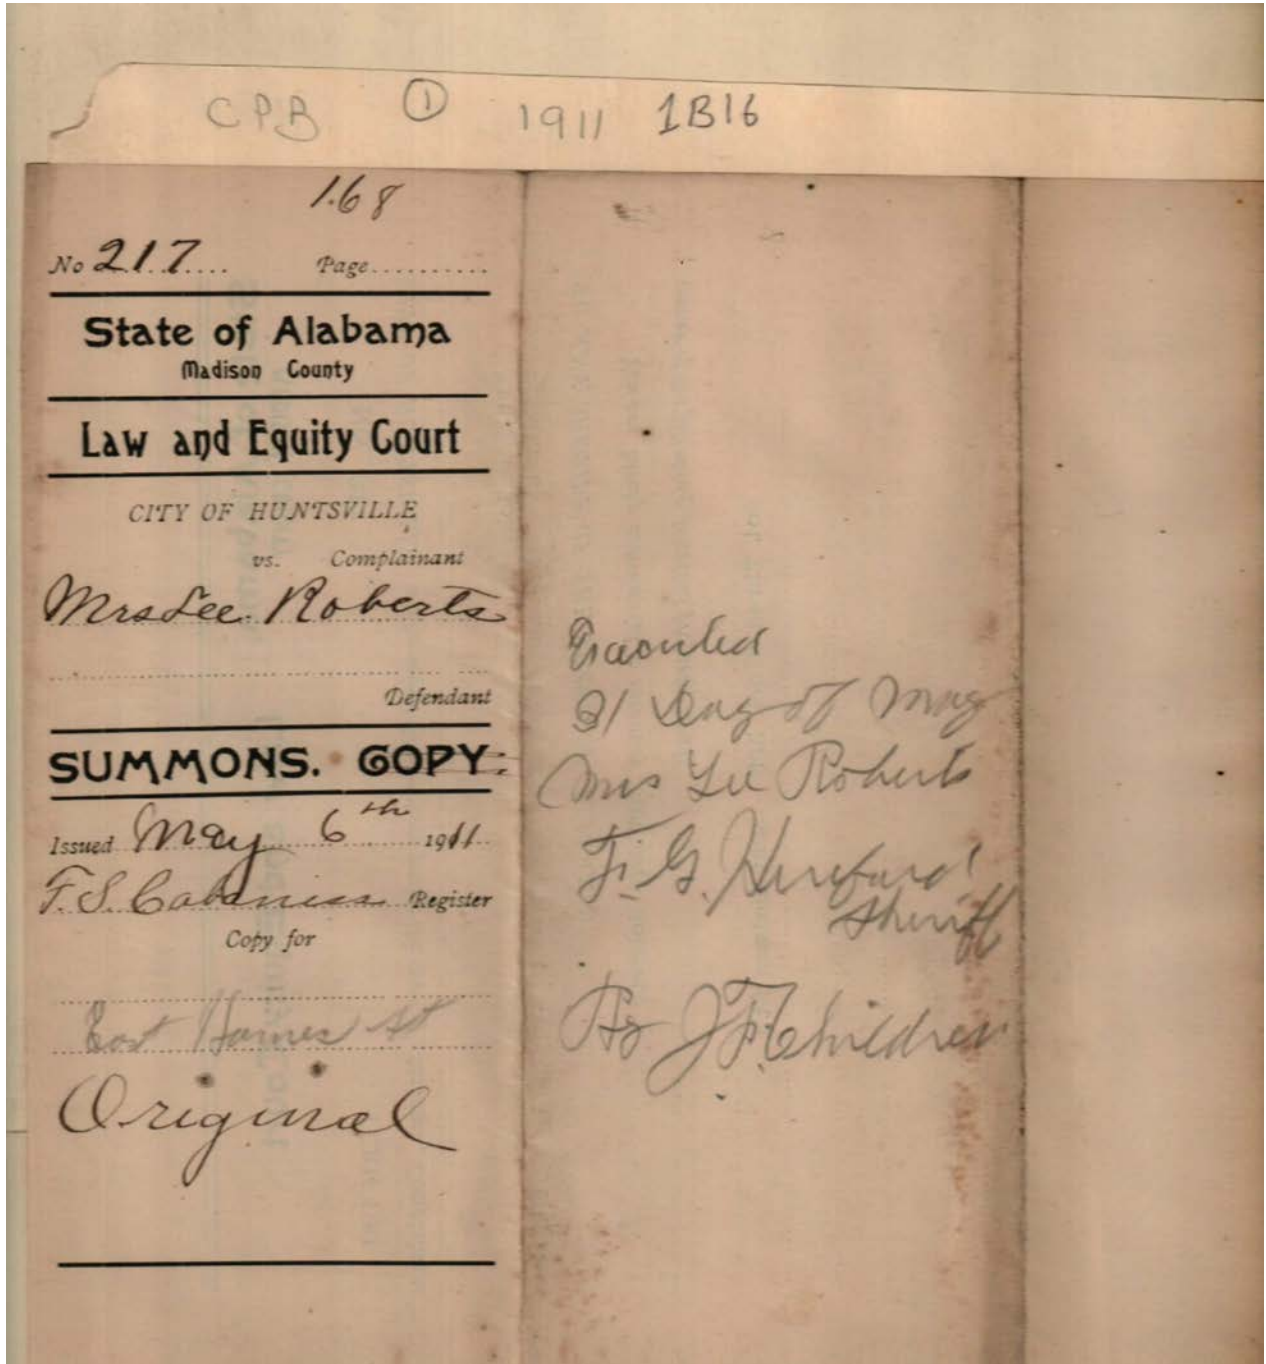 CPB ① 1911 1B16
168
No 217 Page
State of Alabama
Madison County
Law and Equity Court
CITY OF HUNTSVILLE
vs. Complainant
Mrs Lee Roberts
Defendant
SUMMONS. COPY.
Issued May 6th 1911
F.S. Cabaniss Register
Copy for
East Homes St
Original
Executed
31 Day of May
Mrs Lee Roberts
F. G. Hereford
Sheriff
By J F Childress